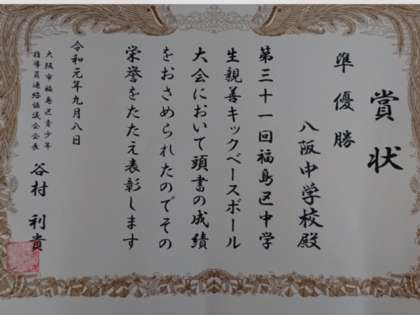 賞状
準優勝
八阪中学校殿
第三十一回福島区中学
生親善キックベースボール
大会において頭書の成績
をおさめられたのでその
栄誉をたたえ表彰します
令和元年九月八日
大阪市福島区青少年
指導員連絡協議会会長
谷村利貴